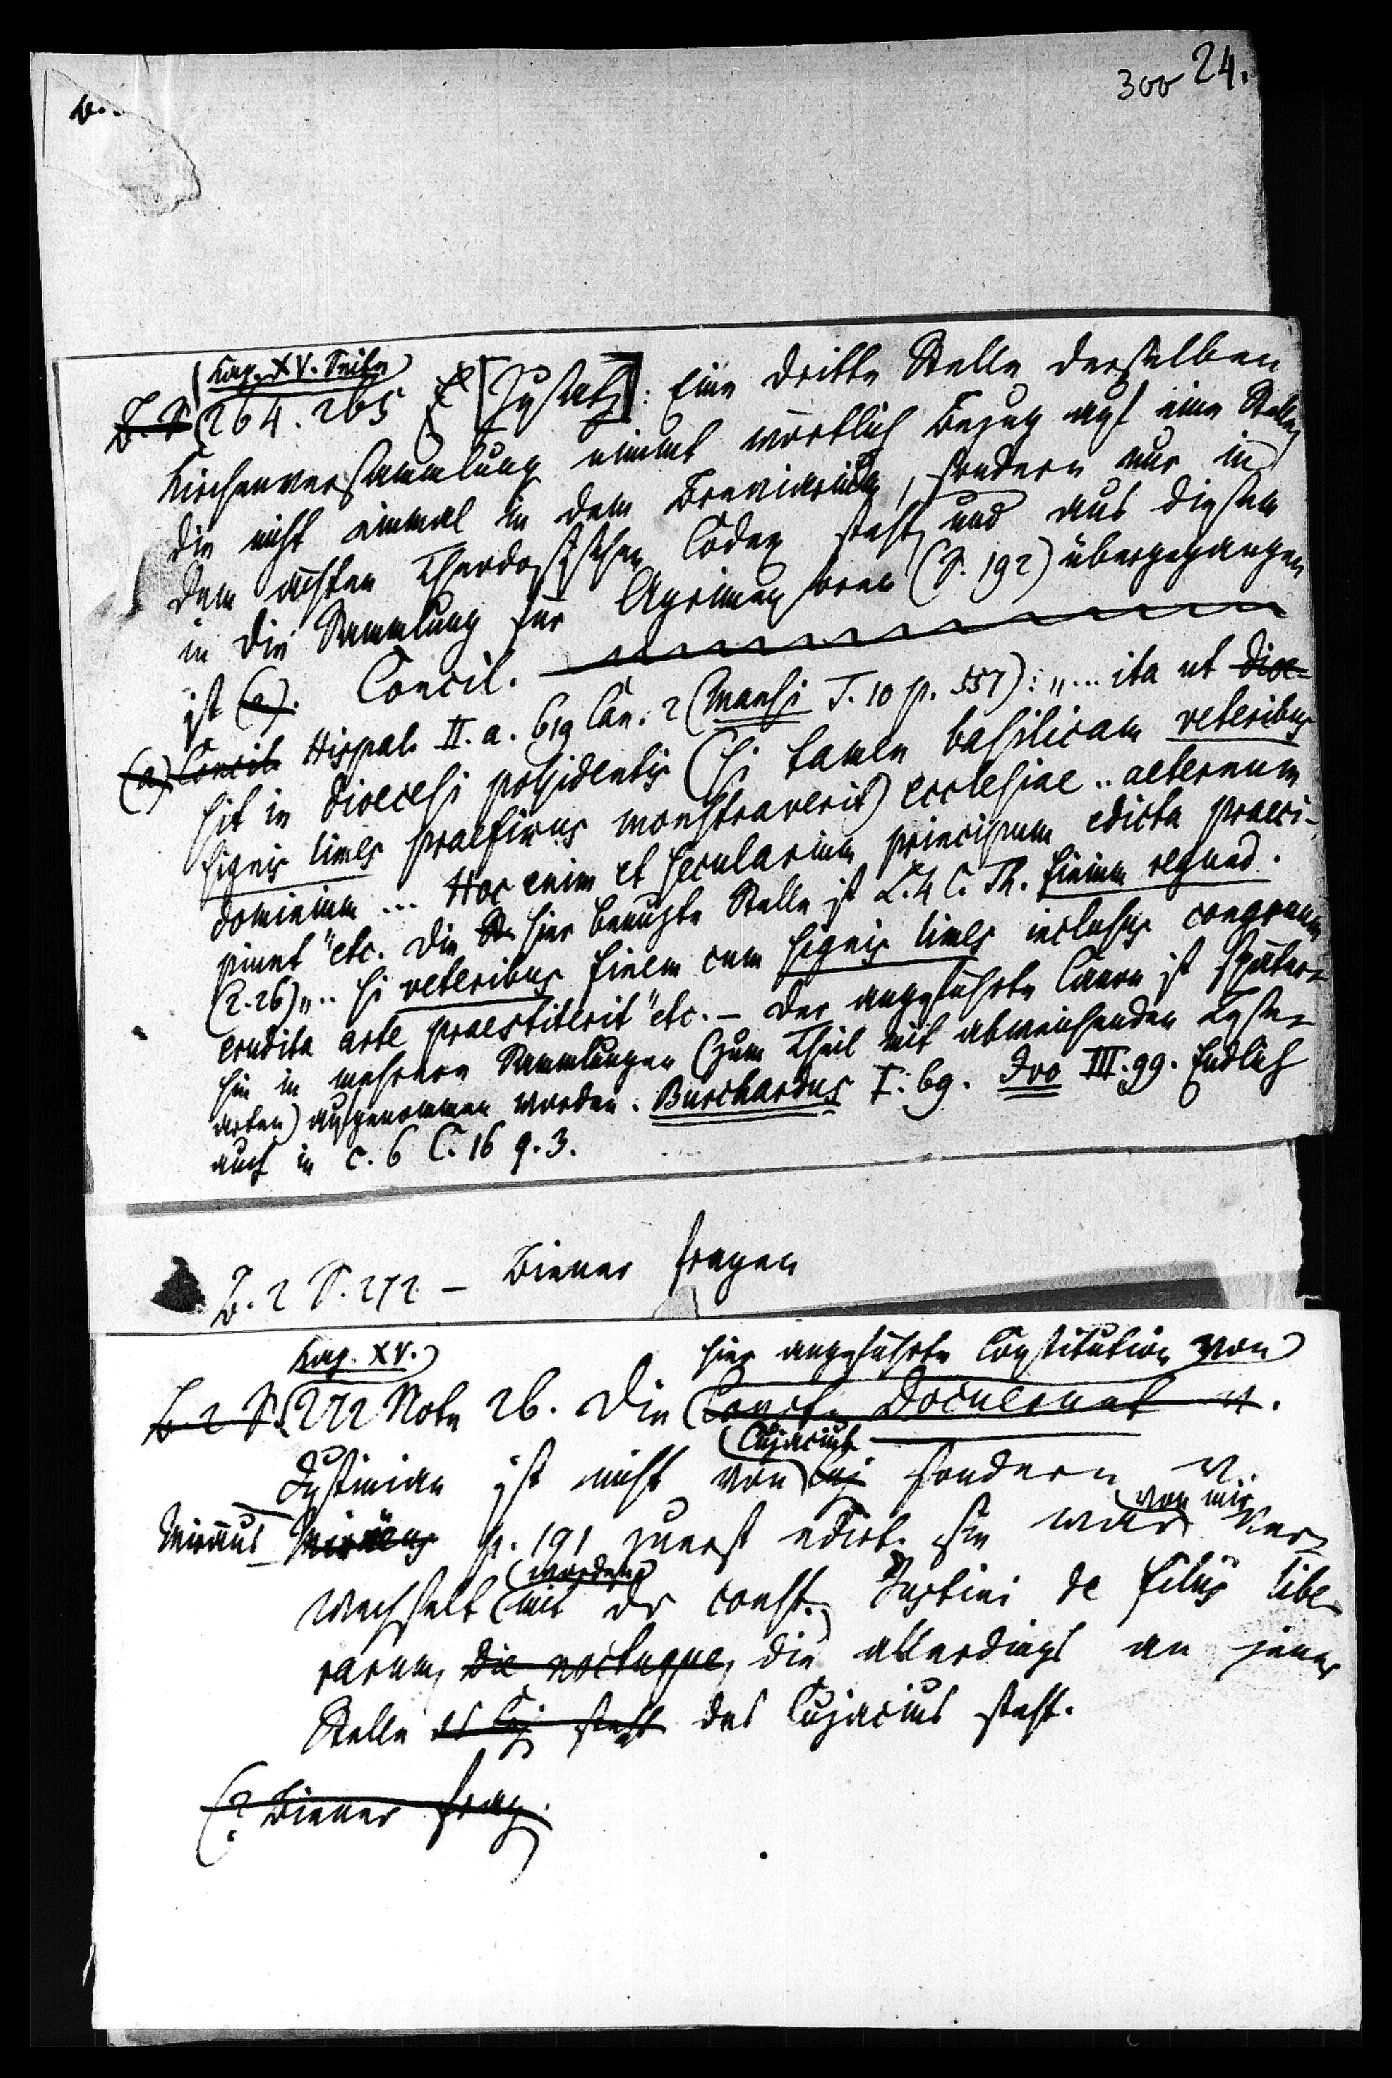 300 24.
Kap. XV. Seite
B. S. 264. 265 [Zusatz]: Eine dritte Stelle derselben
Kirchenversammlung nimmt wörtlich Bezug auf eine Stelle,
die nicht einmal in dem Breviarium, sondern nur in
dem ächten Theodosischen Codex steht, und aus diesem
in die Sammlung für Agrimensoren (S. 192) übergegangen
ist (a). Concil.
(a) Concil. Hispal. II. a. 619 Can. 2 (Mansi T. 10 p. 557): „... ita ut Dioe-
sit in dioecesi possidentis (si tamen basilicam veteribus
signis limes praefixus monstraverit) ecclesiae .. aeternum
dominium ... Hoc enim et secularium principum edicta praeci-
piunt" etc. Die St. hier benutzte Stelle ist L. 4 C. Th. finium regund.
(2. 26) „.. si veteribus signis limes inclusus finem congruum
erudita arte praestiterit" etc. – Der angeführte Canon ist später-
hin in mehrere Sammlungen (zum Theil mit abweichenden Lese-
arten) aufgenommen worden. Burchardus I. 69. Ivo III. 99. Endlich
auch in c. 6 C. 16 q. 3.
B. 2 S. 272. – Biener fragen
Kap. XV. hier angeführte Constitution von
B. 2 S. 272 Note 26. Die
Cujacius
Justinian ist nicht von Cuj sondern v.
von mir
Miräus p. 191 zuerst edirt. Sie war ver-
worden
wechselt mit der const. Justini de filiis libe-
rarum, die allerdings an jener
Stelle des Cujacius steht.
(? Biener frag.